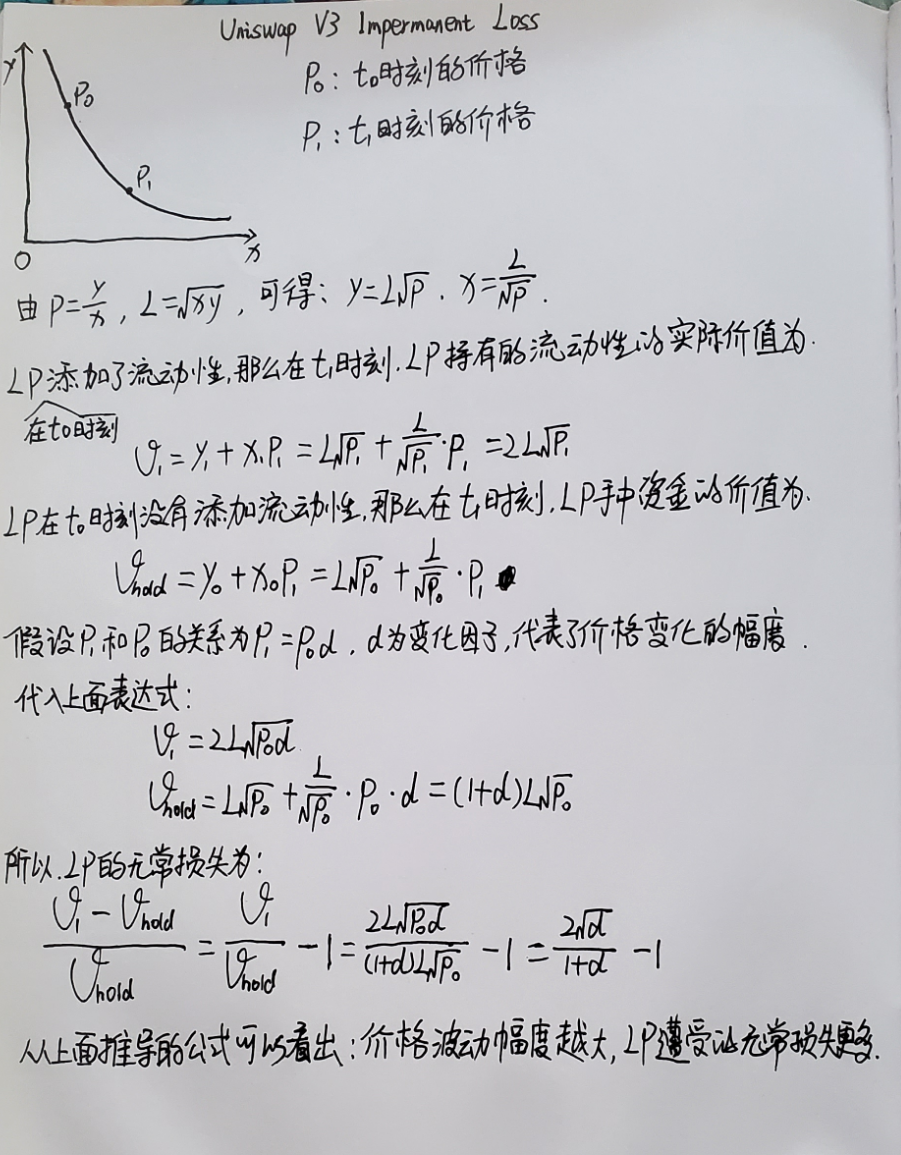 Uniswap V3 Impermanent Loss
P₀: t₀时刻的价格
P₁: t₁时刻的价格
y
P₀
P₁
O
x
由 P=y/x, L=√xy, 可得: y=L√P. x=L/√P.
LP添加了流动性,那么在t₁时刻.LP持有的流动性的实际价值为.
在t₀时刻
V₁=y₁+x₁P₁=L√P₁+L/√P₁·P₁=2L√P₁
LP在t₀时刻没有添加流动性,那么在t₁时刻,LP手中资金的价值为.
Vhold=y₀+x₀P₁=L√P₀+L/√P₀·P₁
假设P₁和P₀的关系为P₁=P₀d, d为变化因子,代表了价格变化的幅度.
代入上面表达式:
V₁=2L√P₀d
Vhold=L√P₀+L/√P₀·P₀·d=(1+d)L√P₀
所以.LP的无常损失为:
(V₁-Vhold)/Vhold=V₁/Vhold-1=2L√P₀d/(1+d)L√P₀-1=2√d/(1+d)-1
从上面推导的公式可以看出:价格波动幅度越大,LP遭受的无常损失更多.